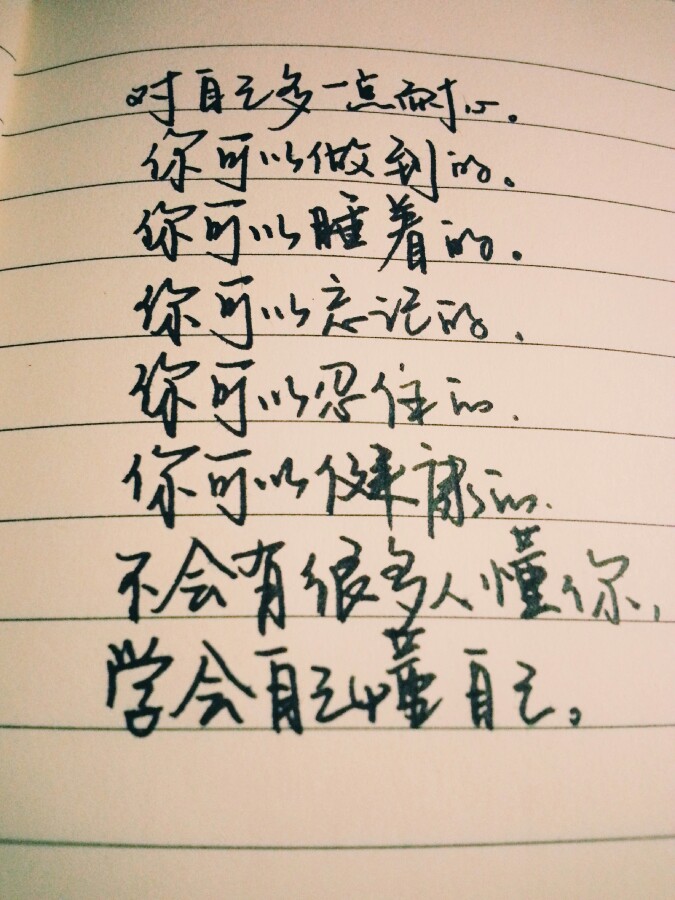 对自己多一点耐心。
你可以做到的。
你可以睡着的。
你可以忘记的.
你可以忍住的.
你可以健康的.
不会有很多人懂你,
学会自己懂自己。